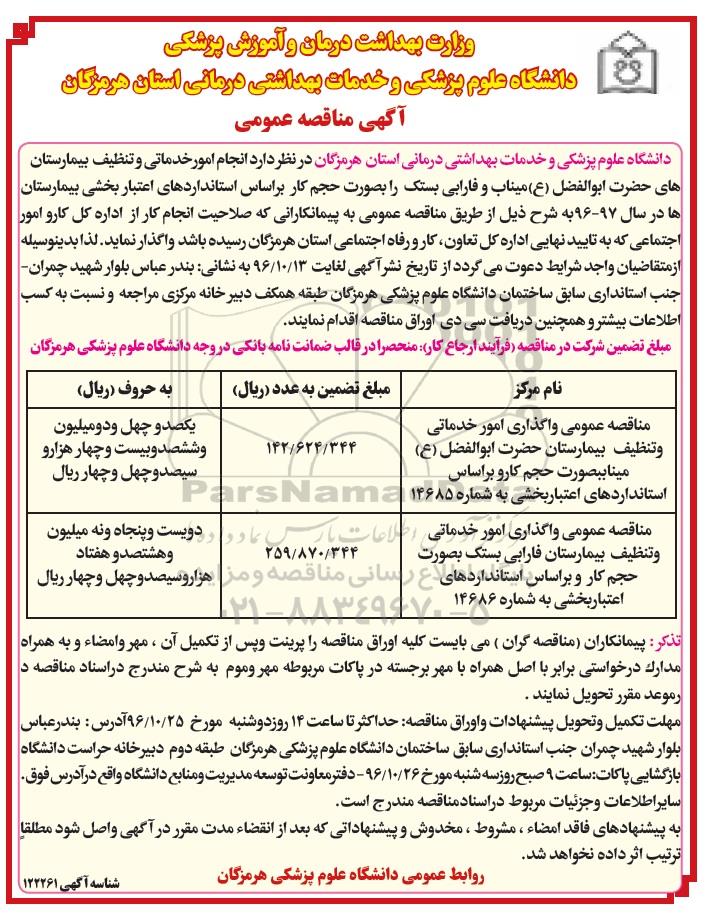 وزارت بهداشت درمان و آموزش پزشکی
دانشگاه علوم پزشکی و خدمات بهداشتی درمانی استان هرمزگان
آگهی مناقصه عمومی
دانشگاه علوم پزشکی و خدمات بهداشتی درمانی استان هرمزگان در نظر دارد انجام امور خدماتی و تنظیف بیمارستان
های حضرت ابوالفضل (ع) میناب و فارابی بستک را بصورت حجم کار براساس استانداردهای اعتبار بخشی بیمارستان
ها در سال ۹۷-۹۶ به شرح ذیل از طریق مناقصه عمومی به پیمانکارانی که صلاحیت انجام کار از اداره کل کار و امور
اجتماعی که به تایید نهایی اداره کل تعاون، کار و رفاه اجتماعی استان هرمزگان رسیده باشد واگذار نماید. لذا بدینوسیله
از متقاضیان واجد شرایط دعوت می گردد از تاریخ نشر آگهی لغایت ۹۶/۱۰/۱۳ به نشانی: بندر عباس بلوار شهید چمران-
جنب استانداری سابق ساختمان دانشگاه علوم پزشکی هرمزگان طبقه همکف دبیرخانه مرکزی مراجعه و نسبت به کسب
اطلاعات بیشتر و همچنین دریافت سی دی اوراق مناقصه اقدام نمایند.
مبلغ تضمین شرکت در مناقصه (فرآیند ارجاع کار): منحصرا در قالب ضمانت نامه بانکی در وجه دانشگاه علوم پزشکی هرمزگان
نام مرکز
مبلغ تضمین به عدد (ریال)
به حروف (ریال)
مناقصه عمومی واگذاری امور خدماتی
وتنظیف بیمارستان حضرت ابوالفضل (ع)
میناببصورت حجم کارو براساس
استانداردهای اعتباربخشی به شماره ۱۴۶۸۵
۱۴۲/۶۲۴/۳۴۴
یکصدو چهل ودومیلیون
وششصدوبیست وچهار هزارو
سیصدوچهل وچهار ریال
مناقصه عمومی واگذاری امور خدماتی
وتنظیف بیمارستان فارابی بستک بصورت
حجم کار و براساس استانداردهای
اعتباربخشی به شماره ۱۴۶۸۶
۲۵۹/۸۷۰/۳۴۴
دویست وپنجاه ونه میلیون
وهشتصدو هفتاد
هزاروسیصدوچهل وچهار ریال
ParsNamadData
پایگاه اطلاع رسانی مناقصه و مزایده
۰۲۱-۸۸۳۴۹۶۷۰-۵
تذکر: پیمانکاران (مناقصه گران) می بایست کلیه اوراق مناقصه را پرینت وپس از تکمیل آن ، مهر وامضاء و به همراه
مدارك درخواستی برابر با اصل همراه با مهر برجسته در پاکات مربوطه مهر وموم به شرح مندرج دراسناد مناقصه د
رموعد مقرر تحویل نمایند .
مهلت تکمیل وتحویل پیشنهادات واوراق مناقصه: حداکثر تا ساعت ۱۴ روزدوشنبه مورخ ۹۶/۱۰/۲۵آدرس: بندرعباس
بلوار شهید چمران جنب استانداری سابق ساختمان دانشگاه علوم پزشکی هرمزگان طبقه دوم دبیرخانه حراست دانشگاه
بازگشایی پاکات: ساعت ۹ صبح روزسه شنبه مورخ ۹۶/۱۰/۲۶ - دفترمعاونت توسعه مدیریت ومنابع دانشگاه واقع درآدرس فوق.
سایراطلاعات وجزئیات مربوط دراسنادمناقصه مندرج است.
به پیشنهادهای فاقد امضاء ، مشروط ، مخدوش و پیشنهاداتی که بعد از انقضاء مدت مقرر در آگهی واصل شود مطلقاً
ترتیب اثر داده نخواهد شد.
روابط عمومی دانشگاه علوم پزشکی هرمزگان
شناسه آگهی ۱۲۲۲۶۱